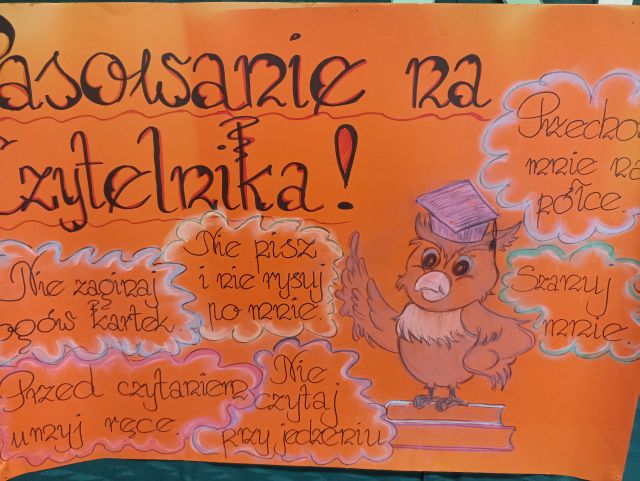 Pasowanie na
Czytelnika!
Nie pisz
i nie rysuj
po mnie.
Przecho
mnie na
półce
Nie zaginaj
rogów kartek.
Szanuj
mnie.
Przed czytaniem
umyj ręce.
Nie
czytaj
przy jedzeniu